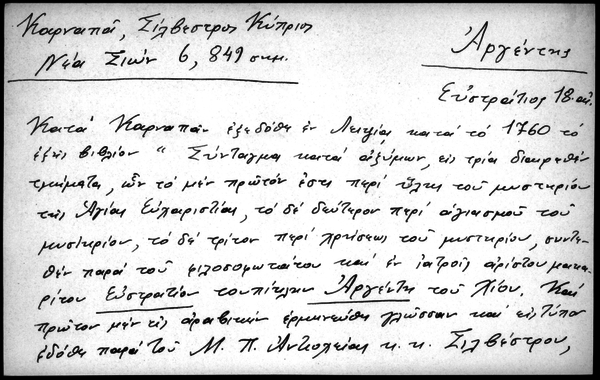 Καρναπᾶ, Σίλβεστρος Κύπριος
Νέα Σιών 6, 849 σημ.
Ἀργέντης
Εὐστράτιος 18. αἰ.
Κατά Καρναπᾶν ἐξεδόθη ἐν Λειψίᾳ κατά τό 1760 τό
ἑξῆς βιβλίον " Σύνταγμα κατά ἀζύμων, εἰς τρία διαιρεθέν
τμήματα, ὧν τό μέν πρῶτόν ἐστι περί ὕλης τοῦ μυστηρίου
τῆς Ἁγίας Εὐχαριστίας, τό δέ δεύτερον περί ἁγιασμοῦ τοῦ
μυστηρίου, τό δέ τρίτον περί χρήσεως τοῦ μυστηρίου, συντε-
θέν παρά τοῦ φιλοσοφωτάτου καί ἐν ἰατροῖς ἀρίστου μακα-
ρίτου Εὐστρατίου τοὐπίκλην Ἀργέντη τοῦ Χίου. Καί
πρῶτον μέν εἰς ἀραβικήν ἑρμηνευθέν γλῶσσαν καί εἰς τύπον
ἐδόθη παρά τοῦ Μ. Π. Ἀντιοχείας κ. κ. Σιλβέστρου,